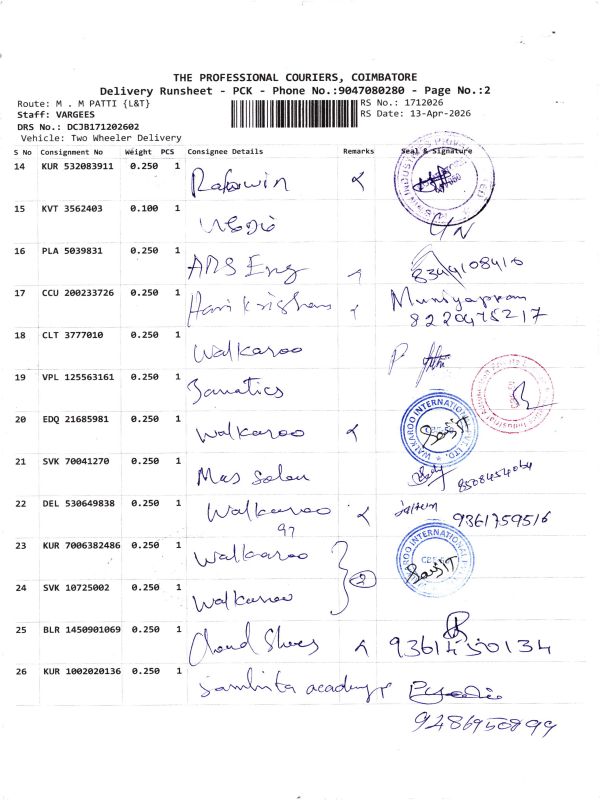 THE PROFESSIONAL COURIERS, COIMBATORE
Delivery Runsheet - PCK - Phone No.:9047080280 - Page No.:2
Route: M . M PATTI {L&T} RS No.: 1712026
Staff: VARGEES RS Date: 13-Apr-2026
DRS No.: DCJB171202602
Vehicle: Two Wheeler Delivery
S No Consignment No Weight PCS Consignee Details Remarks Seal & Signature
14 KUR 532083911 0.250 1
15 KVT 3562403 0.100 1
16 PLA 5039831 0.250 1 ARS Eng 8344108410
17 CCU 200233726 0.250 1 Hari Krishana Muniyappan
8220475217
18 CLT 3777010 0.250 1 Walkaroo
19 VPL 125563161 0.250 1 Fanatics
20 EDQ 21685981 0.250 1 Walkaroo WALKAROO INTERNATIONAL PVT LTD.
21 SVK 70041270 0.250 1 Mas Solar 8508454064
22 DEL 530649838 0.250 1 Walkaroo 9361759516
97
23 KUR 7006382486 0.250 1 Walkaroo 2
24 SVK 10725002 0.250 1 Walkaroo
25 BLR 1450901069 0.250 1 Cloud Shoes 9361450134
26 KUR 1002020136 0.250 1 Samhita academy
9286950899